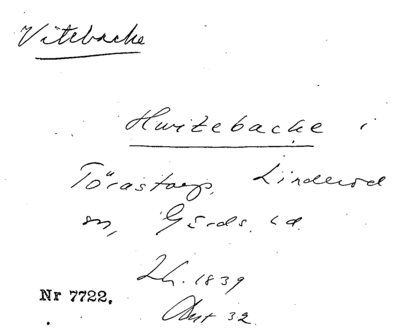 Vitebacke
Hwitebacke i
Törastorp, Linderöd
sn, Gärds hd
Lh. 1839
Akt 32
Nr 7722.